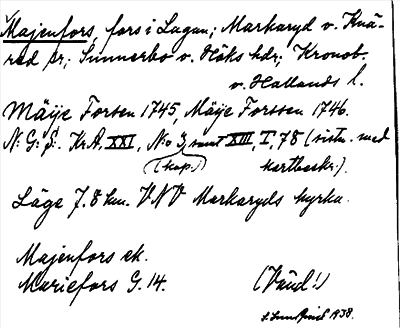 Majenfors, fors i Lagan; Markaryd v. Knä-
red sr; Sunnerbo v. Höks hdr; Kronob.
v. Hallands l.
Mäije Forsen 1745, Mäije Forssen 1746.
N: G: S: Kr. A. XXI, N:o 3, samt XIII, I, 78 (sistn. med
(kop.) kartbeskr.).
Läge 7.8 km. VNV Markaryds kyrka.
Majenfors ek.
Mariefors G. 14. (Vänd!)
1938.